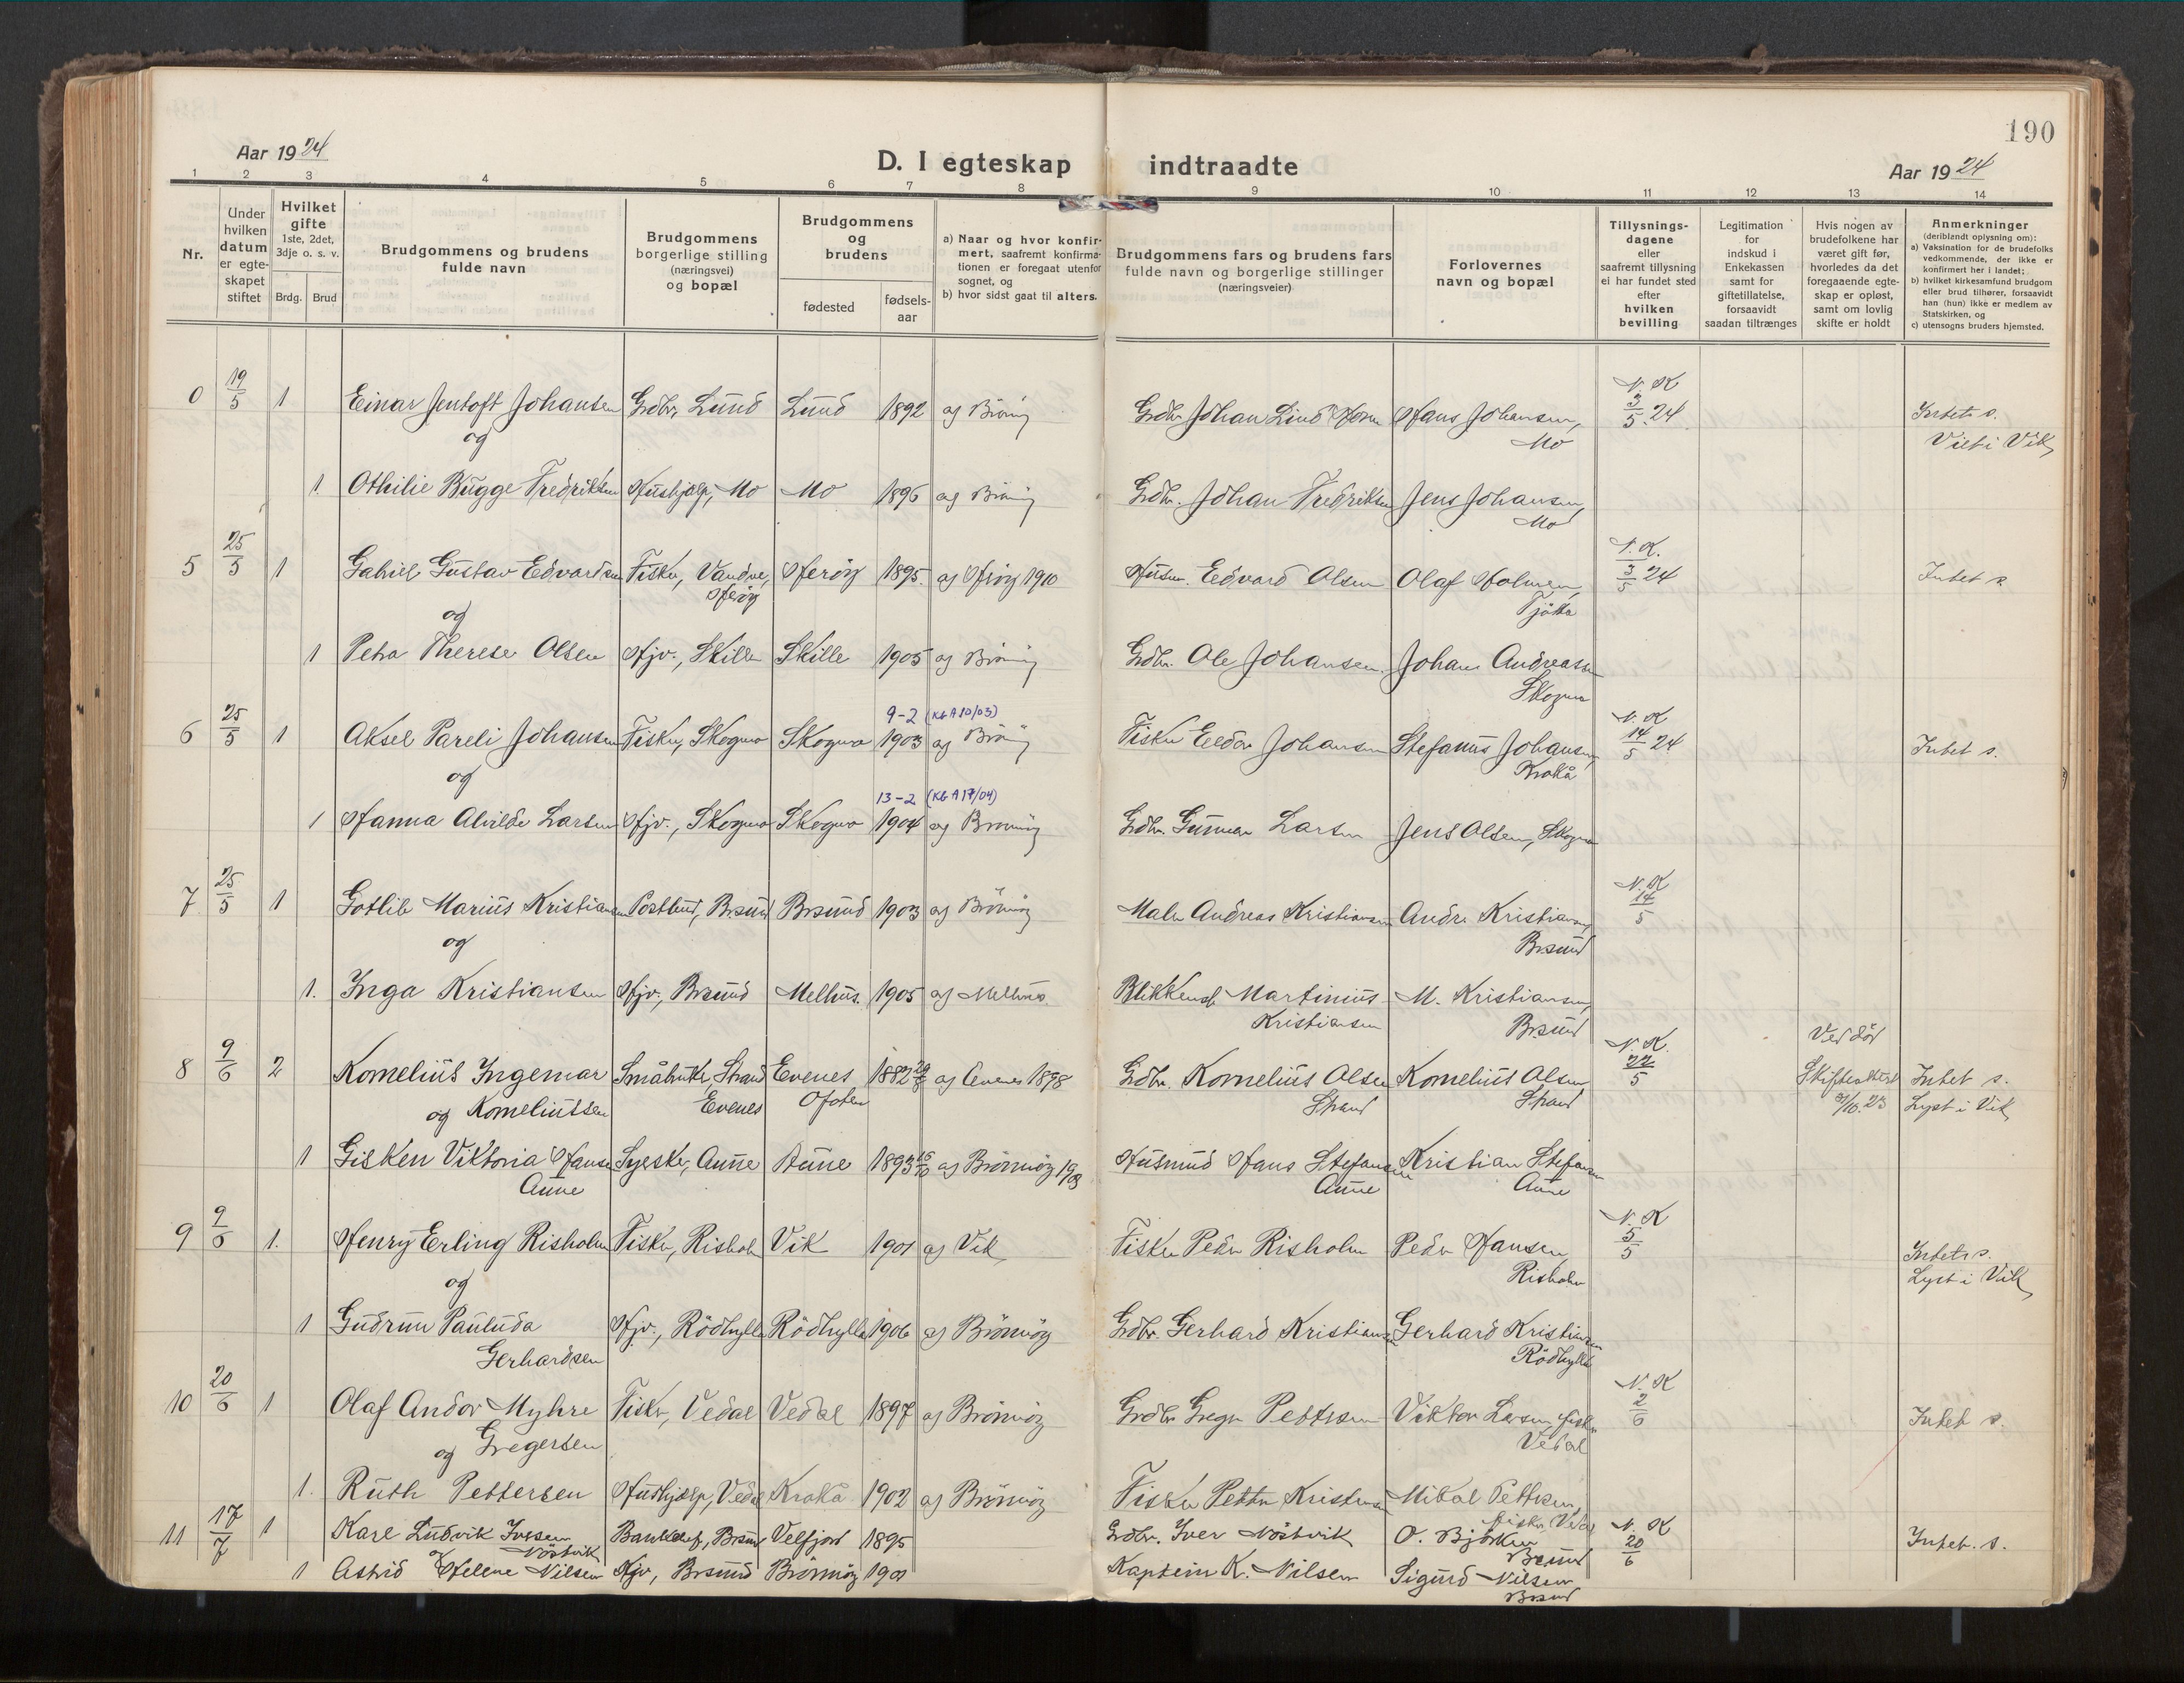 190
Aar 1924
D. I egteskap indtraadte
Aar 1924
1 2 3 4 5 6 7 8 9 10 11 12 13 14
Nr.
Under hvilken datum er egte-skapet stiftet
Hvilket gifte 1ste, 2det, 3dje o. s. v.
Brdg. Brud
Brudgommens og brudens fulde navn
Brudgommens borgerlige stilling (næringsvei) og bopæl
Brudgommens og brudens
fødested
fødsels-aar
a) Naar og hvor konfir-mert, saafremt konfirma-tionen er foregaat utenfor sognet, og
b) hvor sidst gaat til alters.
Brudgommens fars og brudens fars fulde navn og borgerlige stillinger (næringsveier)
Forlovernes navn og bopæl
Tillysnings-dagene eller saafremt tillysning ei har fundet sted efter hvilken bevilling
Legitimation for indskud i Enkekassen samt for giftetillatelse, forsaavidt saadan tiltrænges
Hvis nogen av brudefolkene har været gift før, hvorledes da det foregaaende egte-skap er opløst, samt om lovlig skifte er holdt
Anmerkninger (deriblandt oplysning om):
a) Vaksination for de brudefolks vedkommende, der ikke er konfirmert her i landet;
b) hvilket kirkesamfund brudgom eller brud tilhører, forsaavidt han (hun) ikke er medlem av Statskirken, og
c) utensogns bruders hjemsted.
0 19/5 1 Einar Jentoft Johansen Grdbr. Lund Lund 1892 Grdbr Johan Hans Johansen, Mo N. K 3/5 24 Intet s.
og
1. Othilie Bugge Fredriksen Hushjælp, Mo Mo 1896 Grdbr. Johan Fredriksen Jens Johansen, Mo
5 25/5 1 Gabriel Gustav Edvardsen Fisker, Herøy Herøy 1895 ag Herøy 1910 Husm. Edvard Olsen Olaf Holmen, Tjøtta N. K. 3/5 24 Intet s.
og
1 Petra Therese Olsen Hjv., Skille Skille 1905 Grdbr. Ole Johansen Johan Andreassen Skogmo
6 25/5 1 Aksel Pareli Johansen Fisker, Skogmo Skogmo 9-2 1903 (Kb A 10/03) Fisker Johansen Stefanus Johansen, Krokå N. K 14/5 24 Intet s.
og
1 Hanna Alvilde Larsen Hjv., Skogmo Skogmo 13-2 1904 (Kb A 17/04) ag Brønnøy Grdbr. Gunnar Larsen Jens Olsen, Skogmo
7 25/5 1 Gotlib Marius Kristiansen Postbud, Brsund Brsund 1903 ag Brønnøy Maler Andreas Kristiansen Kristiansen, Brsund N. K 14/5
og
1. Inga Kristiansen Hjv., Brsund Melhus. 1905 ag Melhus Blikkensl. Martinius Kristiansen M. Kristiansen, Brsund
8 9/6 2 Kornelius Ingemar Korneliussen Småbruker, Strand Evenes Evenes Ofoten 1882 ag Evenes 1898 Grdbr. Kornelius Olsen Strand Kornelius Olsen Strand N. K. 22/5 Ved død Intet s. Lyst i Vik
og
1 Gisken Viktoria Hansen Aune Syerske, Aune Aune 1893 ag Brönnöy Husmand Hans Stefansen Aune Kristian Stefansen Aune
9 9/6 1. Henry Erling Risholm Fisker, Risholm Vik 1901 ag Vik Fisker Peder Risholm Peder Hansen, Risholm N. K 5/5 Intet s. Lyst i Vik
og
1 Gudrun Pauluda Gerhardsen Hjv., Rödhylla Rödhylla 1906 ag Brönnöy Grdbr. Gerhard Kristiansen Gerhard Kristiansen Rödhylla
10 20/6 1 Olaf Andor Myhre Gregersen Fisker, Vedal Vedal 1897 ag Brönnöy Grdbr Greger Pettersen Viktor Larsen, Fisker Vedal N. K 2/6 Intet s.
og
1. Ruth Pettersen Hushjælp, Vedal Krokå 1902 ag Brönnöy Fisker Petter Kristensen Mikal Pettersen, Fisker, Vedal
11 17/7 1 Karl Ludvik Iversen Nöstvik Brsund Velfjord 1895 Grdbr. Iver Nöstvik O. Björken Brsund N. K 20/6 Intet. s.
og
1 Astrid Helene Nilsen Hjv, Brsund Brönnöy 1901 Kaptein K. Nilsen Sigurd Nilsen Brsund